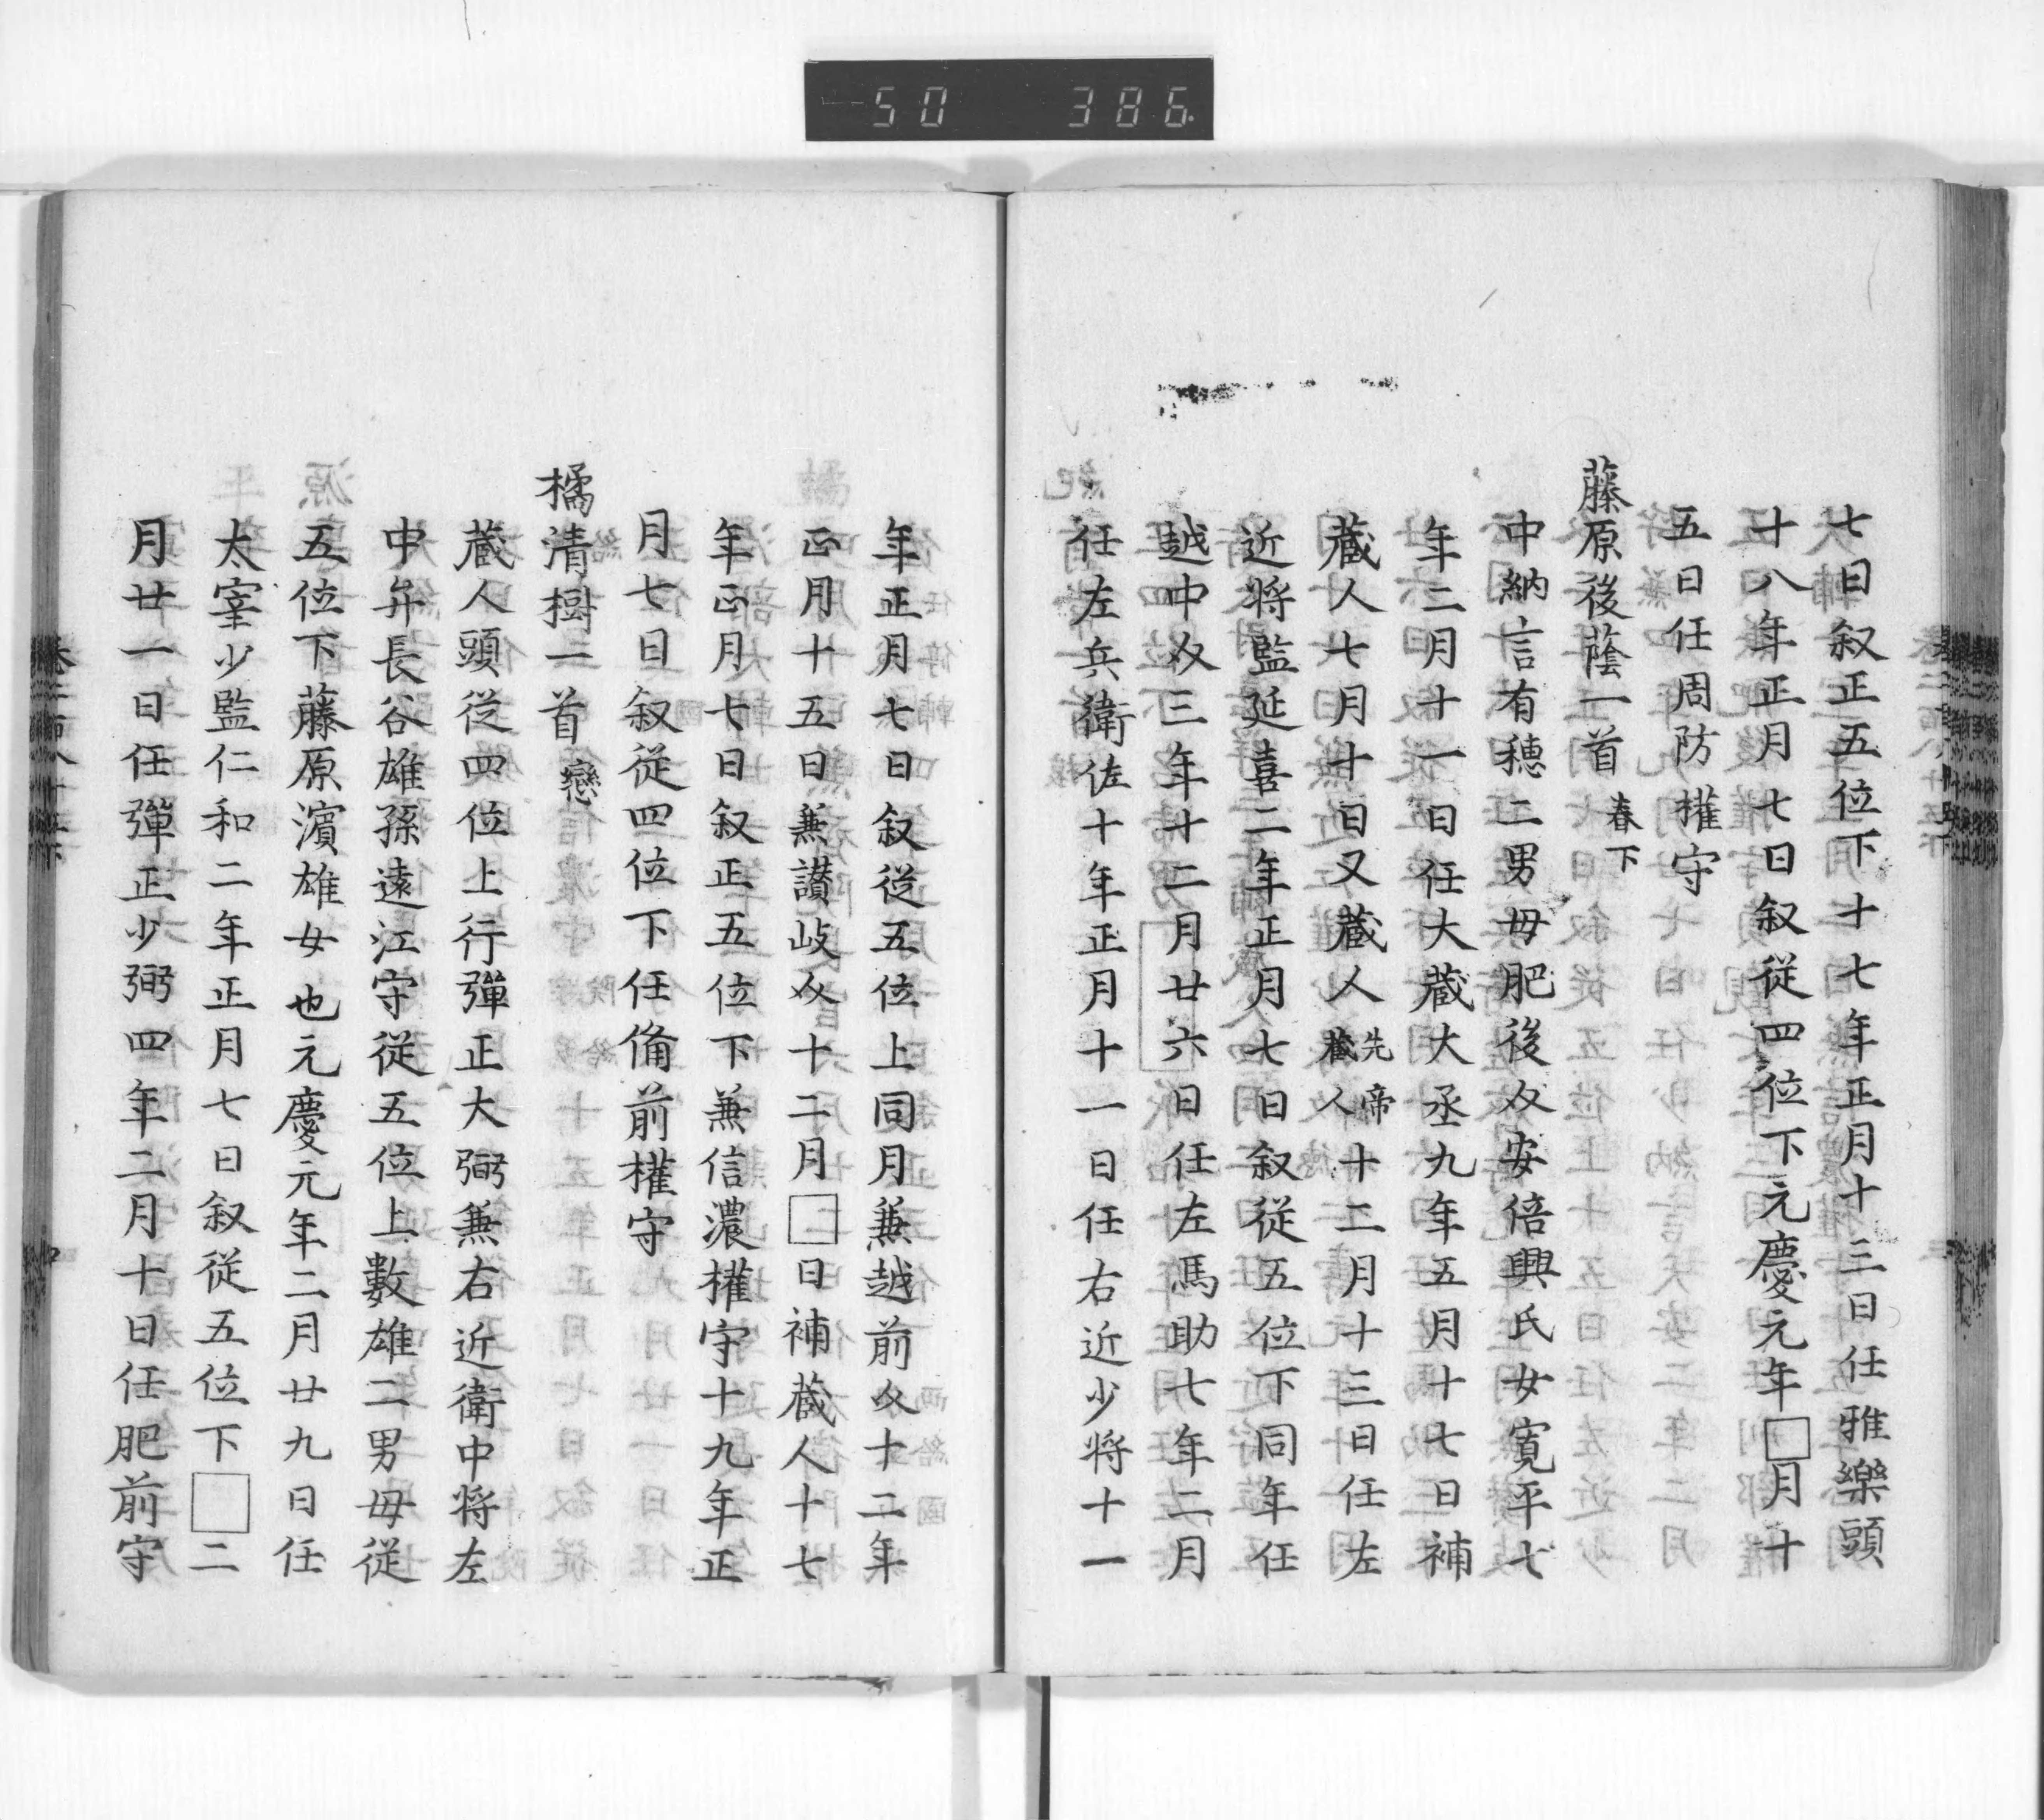 50 386
七日叙正五位下十七年正月十三日任雅樂頭
十八年正月七日叙従四位下元慶元年□月十
五日任周防權守
藤原後蔭一首 春下
中納言有穗二男母肥後介安倍興氏女寛平七
年二月十一日任大蔵大丞九年五月十七日補
蔵人七月十日又蔵人 先帝蔵人 十二月十三日任左
近将監延喜二年正月七日叙従五位下同年任
越中介三年十二月廿六日任左馬助七年二月
任左兵衛佐十年正月十一日任右近少将十一
年正月七日叙従五位上同月兼越前介十二年
正月十五日兼讃岐介十二月□二日補蔵人十七
年正月七日叙正五位下兼信濃權守十九年正
月七日叙従四位下任備前權守
橘清樹一首 戀
蔵人頭従四位上行彈正大弼兼右近衛中将左
中弁長谷雄孫遠江守従五位上數雄二男母従
五位下藤原濱雄女也元慶元年二月廿九日任
太宰少監仁和二年正月七日叙従五位下□二
月廿一日任彈正少弼四年二月十日任肥前守